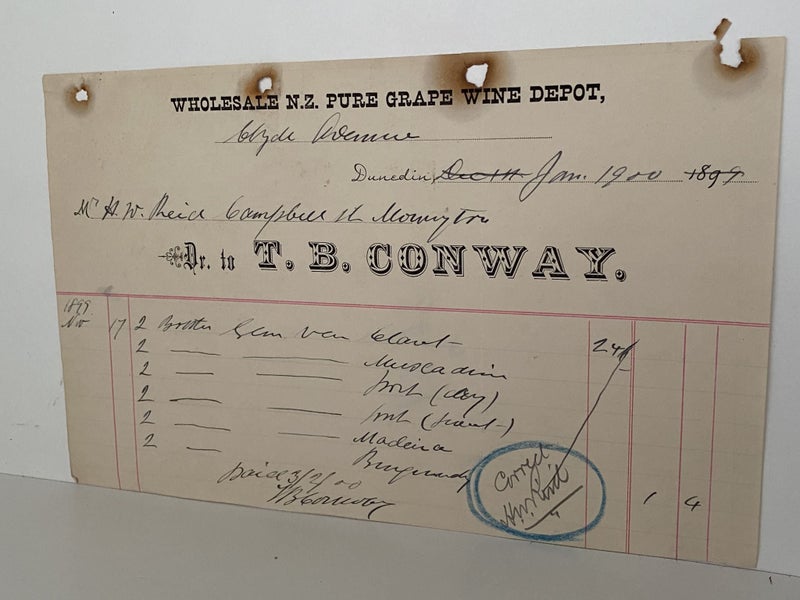 WHOLESALE N.Z. PURE GRAPE WINE DEPOT,
Clyde Avenue
Dunedin, Dec 14 Jan. 1900 1899
Mr H. W. Reid Campbell St Mornington
Dr. to T. B. CONWAY.
1899
Nov 17 2 Bottles Gem Claret 24/
2 — — Muscadine
2 — — Port (dry)
2 — — Port (sweet)
2 — — Madeira
2 — Burgundy
Correct
H.W. Reid
1 4
Paid 3/2/00
TBConway